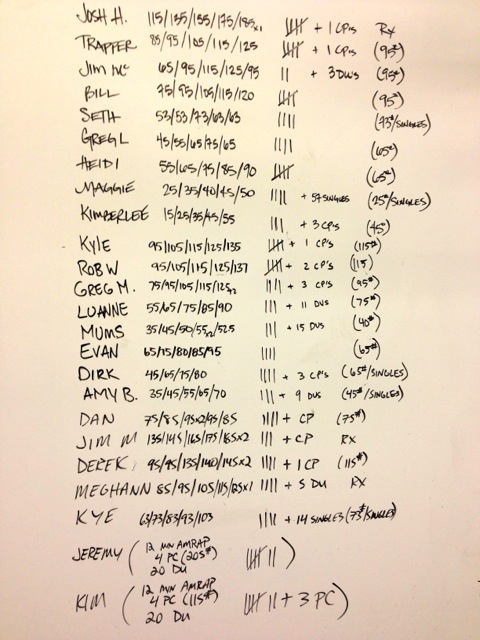 JOSH H. 115/135/155/175/185x1 |||| + 1 CP's RX
TRAPPER 85/95/105/115/125 |||| + 1 CP's (95#)
JIM MC 65/95/115/125/95 || + 3 DU's (95#)
BILL 75/95/105/115/120 |||| (95#)
SETH 53/53/73/63/63 |||| (73#/SINGLES)
GREG L 45/55/65/75/65 |||| (65#)
HEIDI 55/65/75/85/90 |||| (65#)
MAGGIE 25/35/40/45/50 |||| + 57 SINGLES (25#/SINGLES)
KIMBERLEE 15/25/35/45/55 ||| + 3 CP's (45#)
KYLE 95/105/115/125/135 |||| + 1 CP's (115#)
ROB W 95/105/115/125/137 |||| + 2 CP's (115)
GREG M. 75/95/105/115/125x2 |||| + 3 CP's (95#)
LUANNE 55/65/75/85/90 |||| + 11 DUs (75#)
MUMS 35/45/50/55x2/52.5 |||| + 15 DUs (40#)
EVAN 65/75/80/85/95 |||| (65#)
DIRK 45/65/75/80 |||| + 3 CP's (65#/SINGLES)
AMY B. 35/45/55/65/70 |||| + 9 DUs (45#/SINGLES)
DAN 75/85/95x2/95/85 |||| + CP (75#)
JIM M 135/145/165/175/185x2 |||| + CP RX
DEREK 95/95/135/140/145x2 |||| + 1 CP (115#)
MEGHANN 85/95/105/115/125x1 |||| + 5 DU RX
KYE 63/73/83/93/103 |||| + 14 SINGLES (73#/SINGLES)
JEREMY (12 MIN AMRAP
4 PC (205#) |||| || )
20 DU
KIM (12 MIN AMRAP
4 PC (115#) |||| || + 3 PC)
20 DU